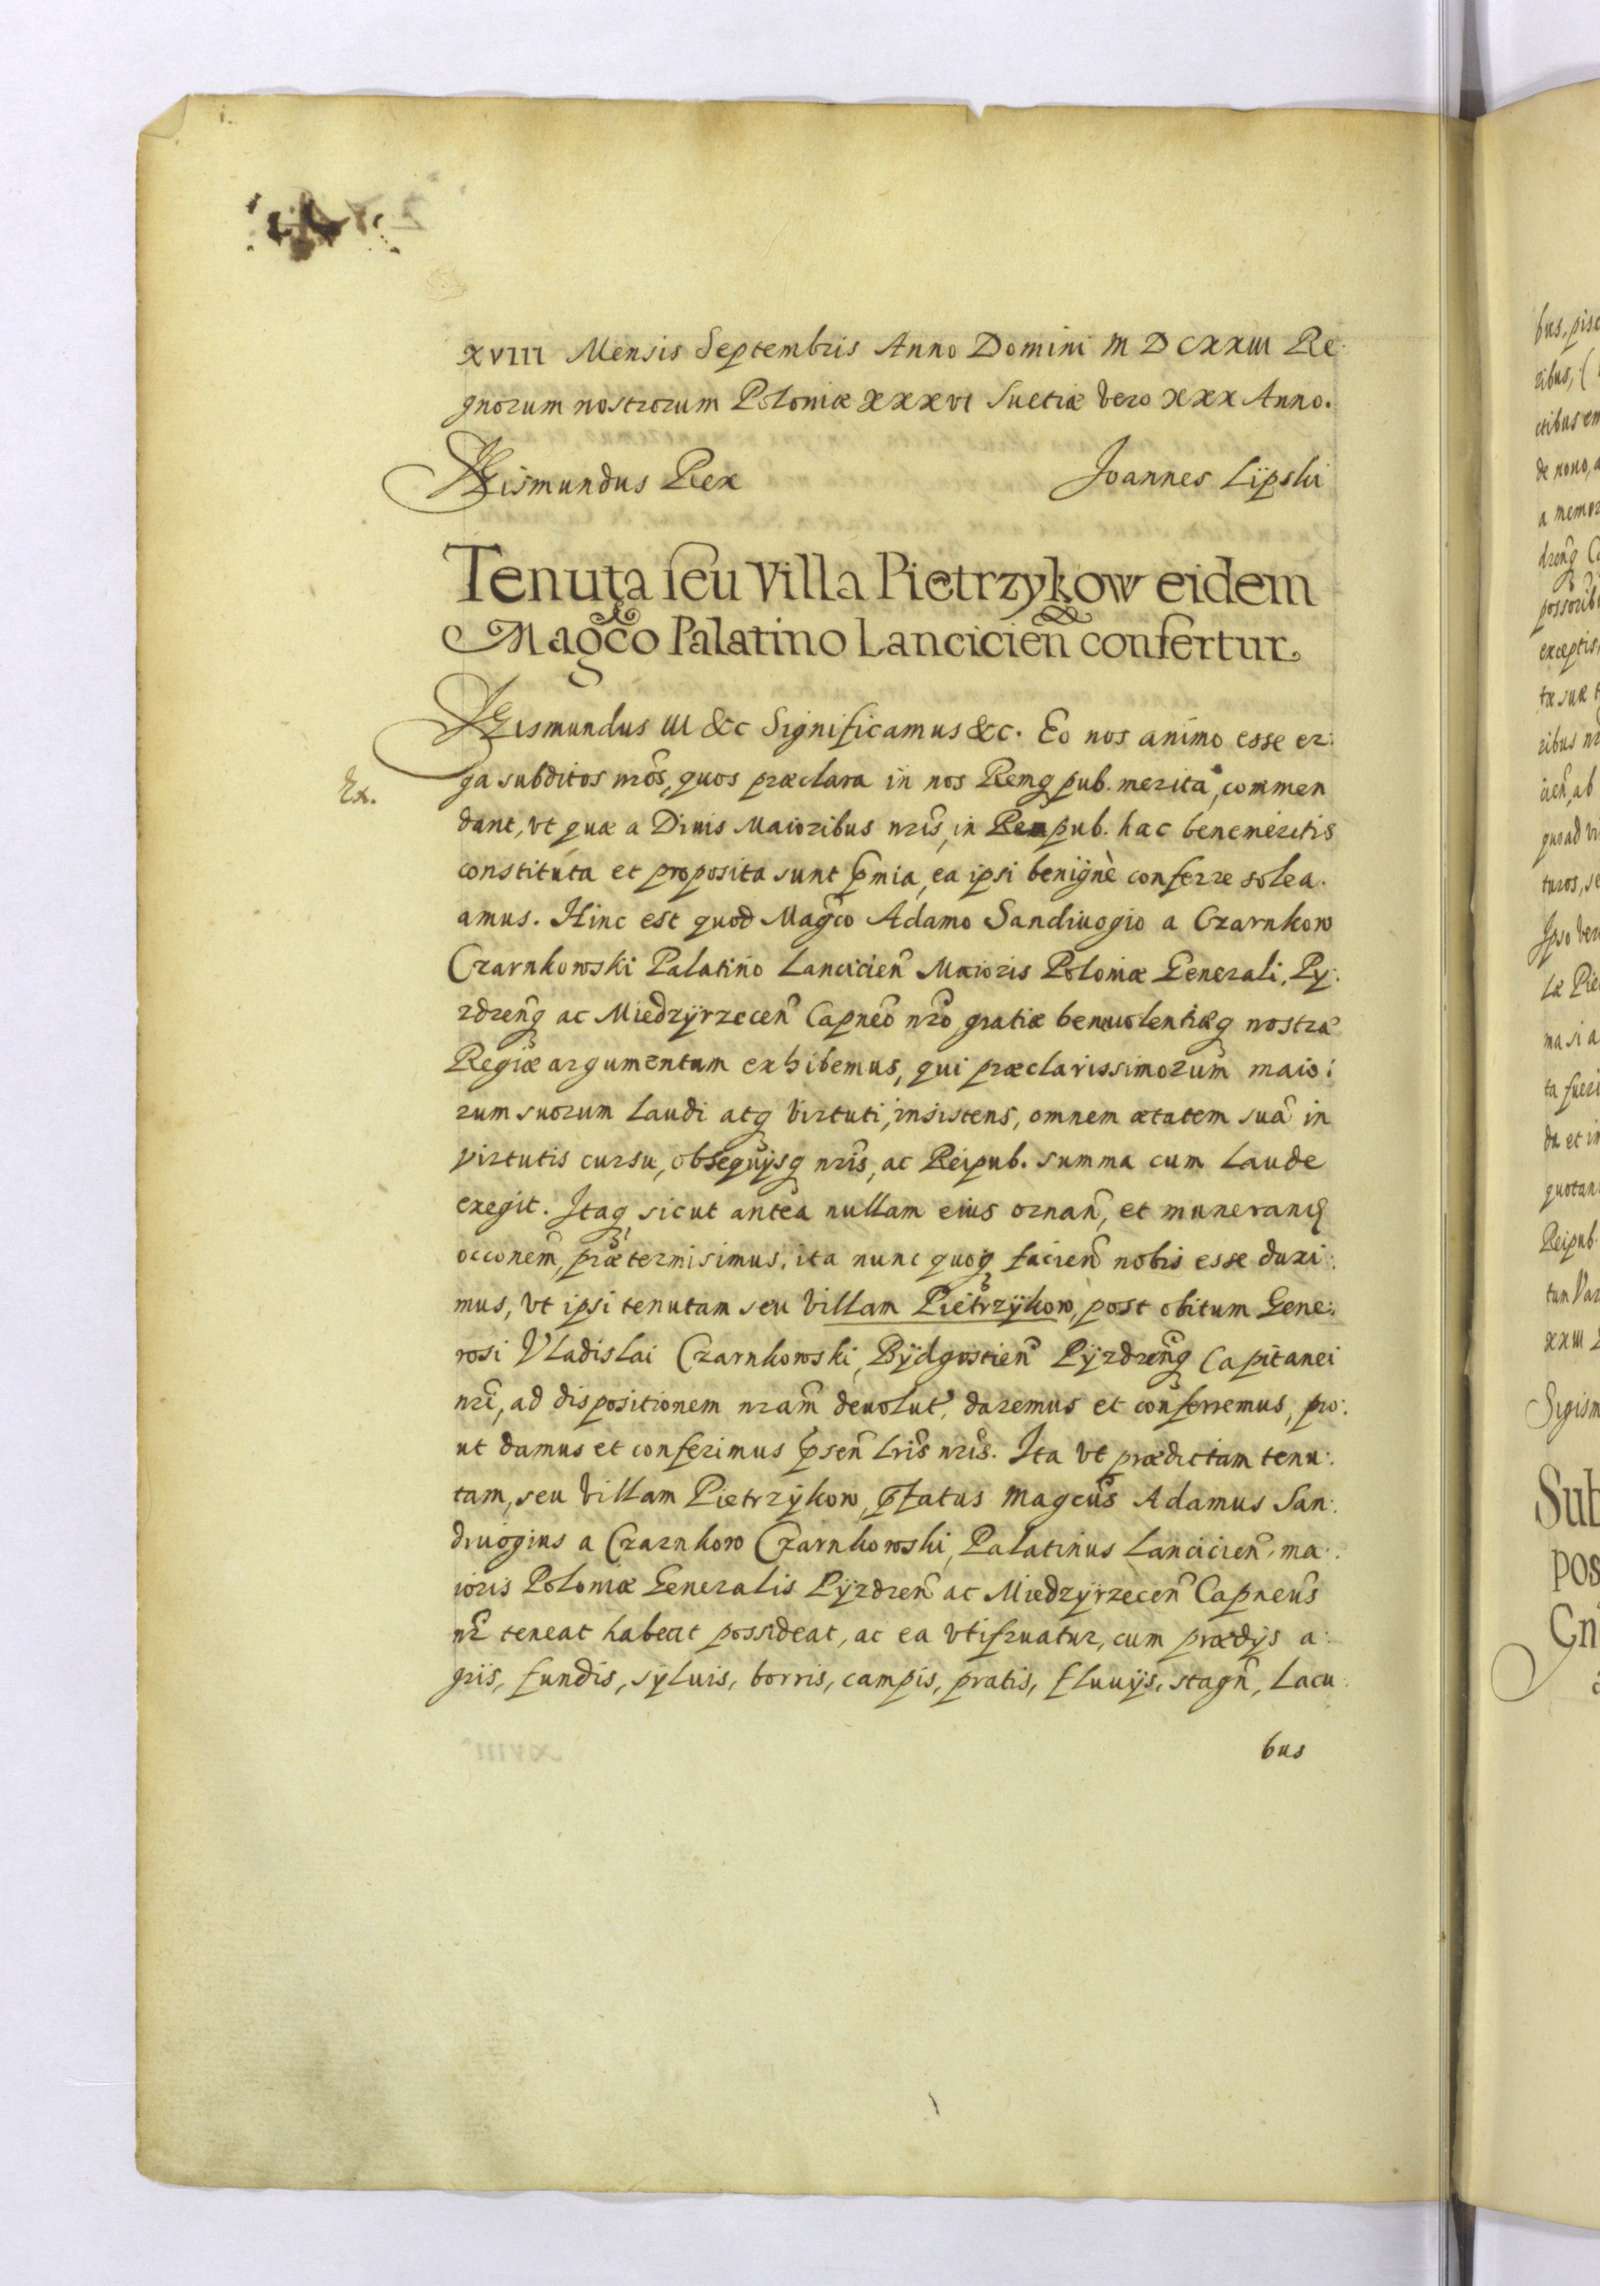 XVIII Mensis Septembris Anno Domini M D CXXIII Re:
gnorum nostrorum Poloniæ XXXVI Suetiæ vero XXX Anno.
Sigismundus Rex Joannes Lipski
Tenuta seu Villa Pietrzykow eidem
Magco Palatino Lancicien confertur
Sigismundus III &c Significamus &c. Eo nos animo esse er:
Ex.
ga subditos nros, quos præclara in nos Remq pub. merita, commen
dant, vt quæ a Divis Maioribus nris, in Rempub. hac benemeritis
constituta et proposita sunt pmia, ea ipsi benignè conferre solea.
amus. Hinc est quod Magco Adamo Sandiuogio a Czarnkow
Czarnkowski Palatino Lancicien Maioris Poloniæ Generali, Py:
zdrenq ac Miedzÿrzecen Capneo nro gratiæ beneuolentiæq nostræ
Regiæ argumentum exhibemus, qui præclarissimorum maio:
rum suorum laudi atq virtuti, insistens, omnem ætatem suã in
virtutis cursu, obsequÿsq nris, ac Reipub. summa cum laude
exegit. Itaq sicut antea nullam eius ornan, et munerandi
occonem, prætermisimus, ita nunc quoq facien nobis esse duxi:
mus, vt ipsi tenutam seu villam Pietrzÿkow, post obitum Gene:
rosi Vladislai Czarnkowski, Bÿdgostien Pÿzdrenq Capitanei
nri, ad dispositionem nram deuolut, daremus et conferremus, pro:
ut damus et conferimus psen lris nris. Ita vt prædictam tenu:
tam, seu villam Pietrzÿkow, pfatus Magcus Adamus San:
diuogius a Czarnkow Czarnkowski, Palatinus Lancicien, ma:
ioris Poloniæ Generalis Pÿzdren ac Miedzÿrzecen Capneus
nr teneat habeat possideat, ac ea vtifruatur, cum prædÿs a:
gris, fundis, sÿluis, borris, campis, pratis, fluuÿs, stagn, lacu:
bus